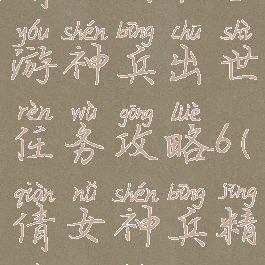 yóu shén bīng chū shì
游神兵出世
rèn wù gōng lüè
任务攻略6(
qiàn nǚ shén bīng jīng
倩女神兵精